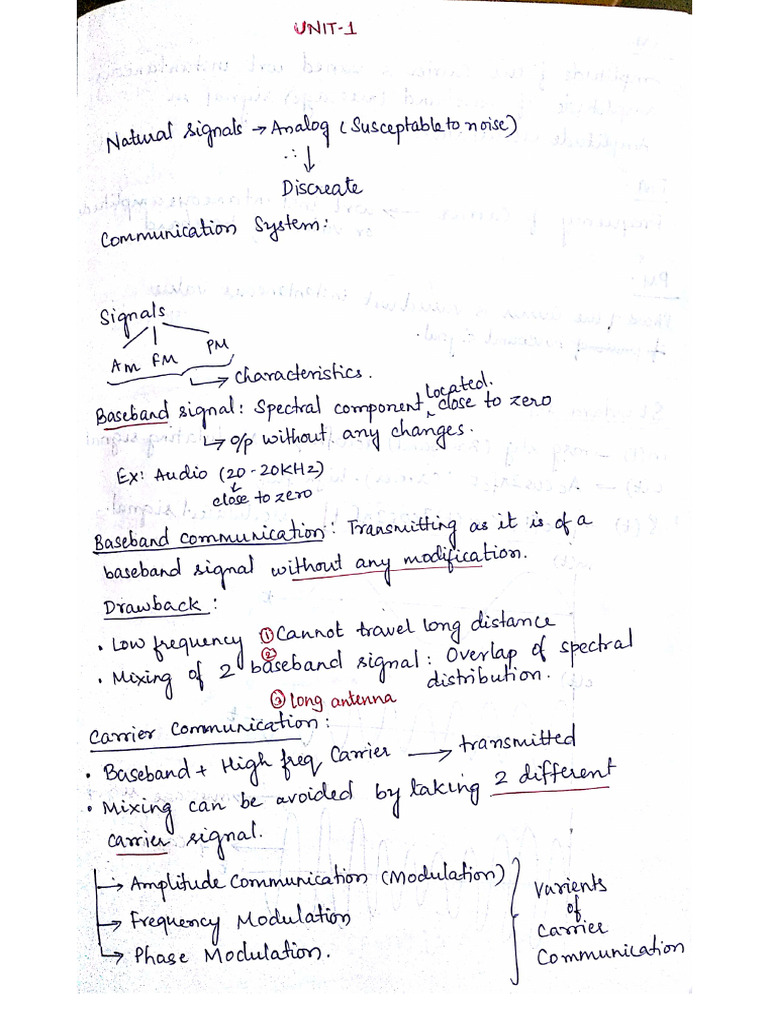 UNIT-1
Natural signals → Analog (Susceptable to noise)
∴ ↓
Discreate
Communication System:
Signals
AM FM PM
↳ characteristics.
Baseband signal: Spectral component ^located. close to zero
↳ o/p without any changes.
Ex: Audio (20-20KHz)
↓
close to zero
Baseband communication: Transmitting as it is of a
baseband signal without any modification.
Drawback:
• Low frequency ① Cannot travel long distance
• Mixing of 2 ② baseband signal: Overlap of spectral
distribution.
③ long antenna
Carrier Communication:
• Baseband + High freq Carrier → transmitted
• Mixing can be avoided by taking 2 different
carrier signal.
→ Amplitude Communication (Modulation)
→ Frequency Modulation
↳ Phase Modulation.
Varients
of
Carrier
Communication